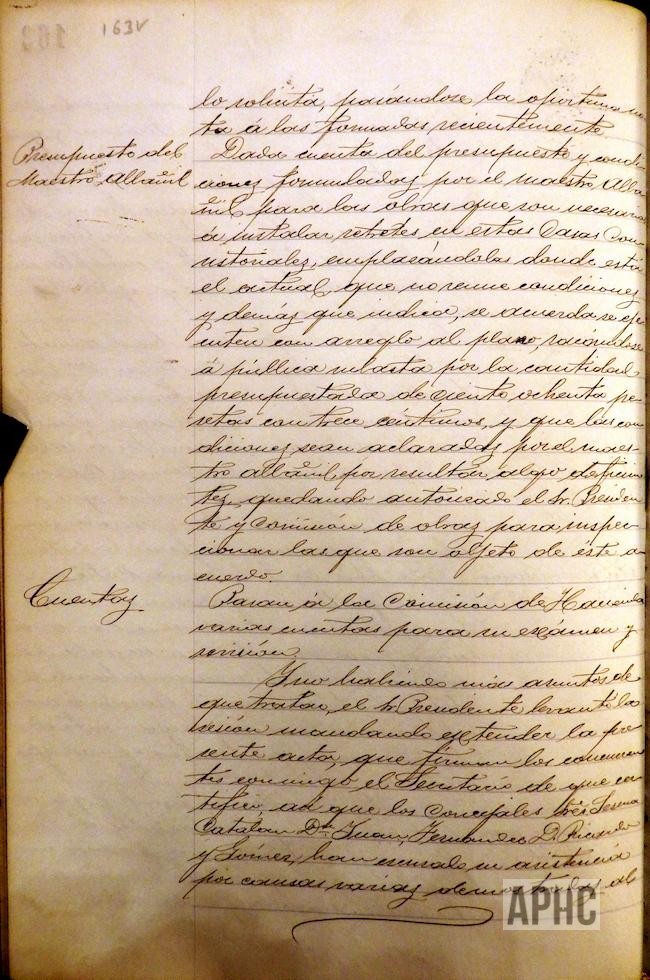 163v
lo solicita, pasándose la oportuna no-
ta á las formadas recientemente.
Presupuesto del
Maestro albañil
Dada cuenta del presupuesto y condi-
ciones formuladas por el maestro Alba-
ñil para las obras que son necesarias
á instalar retretes en estas Casas Con-
sistoriales, emplazándolas donde está
el actual, que no reune condiciones
y demás que indica, se acuerda se eje-
cuten con arreglo al plano, sacándose
á pública subasta por la cantidad
presupuestada de ciento ochenta pe-
setas con trece céntimos, y que las con-
diciones sean aclaradas por el maes-
tro albañil por resultar algo deficien-
tes, quedando autorizado el Sr. Presiden-
te y Comisión de obras para inspec-
cionar las que son objeto de éste a-
cuerdo.
Cuentas
Pasan á la Comisión de Hacienda
varias cuentas para su exámen y
revisión.
Y no habiendo más asuntos de
que tratar, el Sr. Presidente levantó la
sesión mandando extender la pre-
sente acta, que firman los concurren-
tes conmigo el Secretario de que cer-
tifico, así que los Concejales Sres
Catalán Dn. Juan, Fernandez D. Ricardo
y Gómez, han escusado su asistencia
por causas varias al
APHC